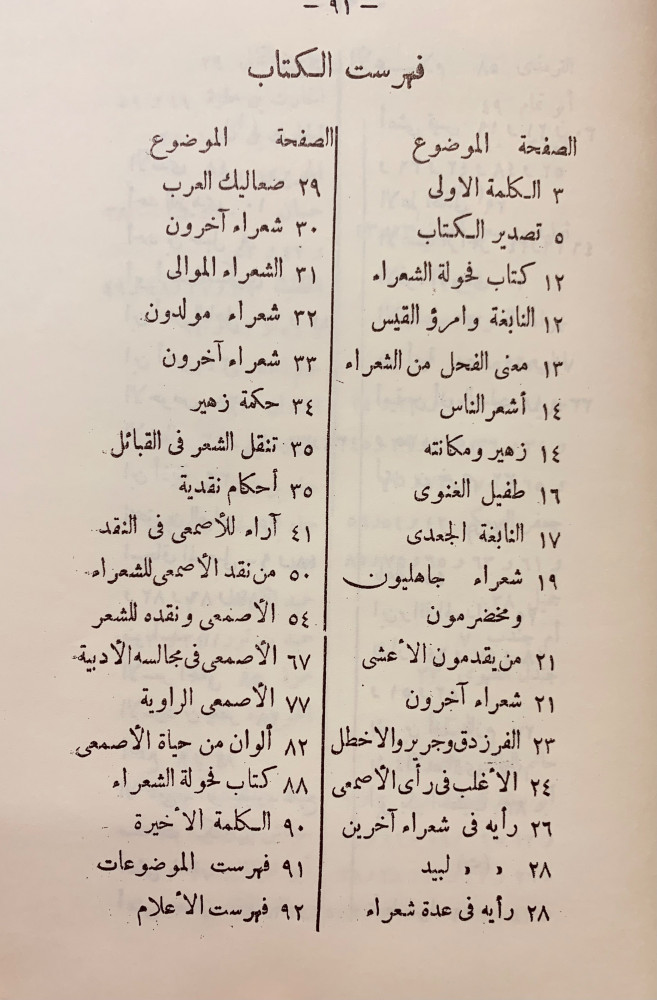 — ٩١ —
فهرست الـكتاب
الصفحة الموضوع
٣ الـكلمة الاولى
٥ تصدير الـكتاب
١٢ كتاب فحولة الشعراء
١٢ النابغة وامرؤ القيس
١٣ معنى الفحل من الشعراء
١٤ أشعر الناس
١٤ زهير ومكانته
١٦ طفيل الغنوى
١٧ النابغة الجعدى
١٩ شعراء جاهليون
ومخضرمون
٢١ من يقدمون الأعشى
٢١ شعراء آخرون
٢٣ الفرزدق وجرير والاخطل
٢٤ الأغلب فى رأى الأصمعى
٢٦ رأيه فى شعراء آخرين
٢٨ » » لبيد
٢٨ رأيه فى عدة شعراء
الصفحة الموضوع
٢٩ صعاليك العرب
٣٠ شعراء آخرون
٣١ الشعراء الموالى
٣٢ شعراء مولدون
٣٣ شعراء آخرون
٣٤ حكمة زهير
٣٥ تنقل الشعر فى القبائل
٣٥ أحكام نقدية
٤١ آراء للأصمعى فى النقد
٥٠ من نقد الأصمعى للشعراء
٥٤ الأصمعى ونقده للشعر
٦٧ الأصمعى فى مجالسه الأدبية
٧٧ الأصمعى الراوية
٨٢ ألوان من حياة الأصمعى
٨٨ كتاب فحولة الشعراء
٩٠ الـكلمة الأخيرة
٩١ فهرست الموضوعات
٩٢ فهرست الأعلام